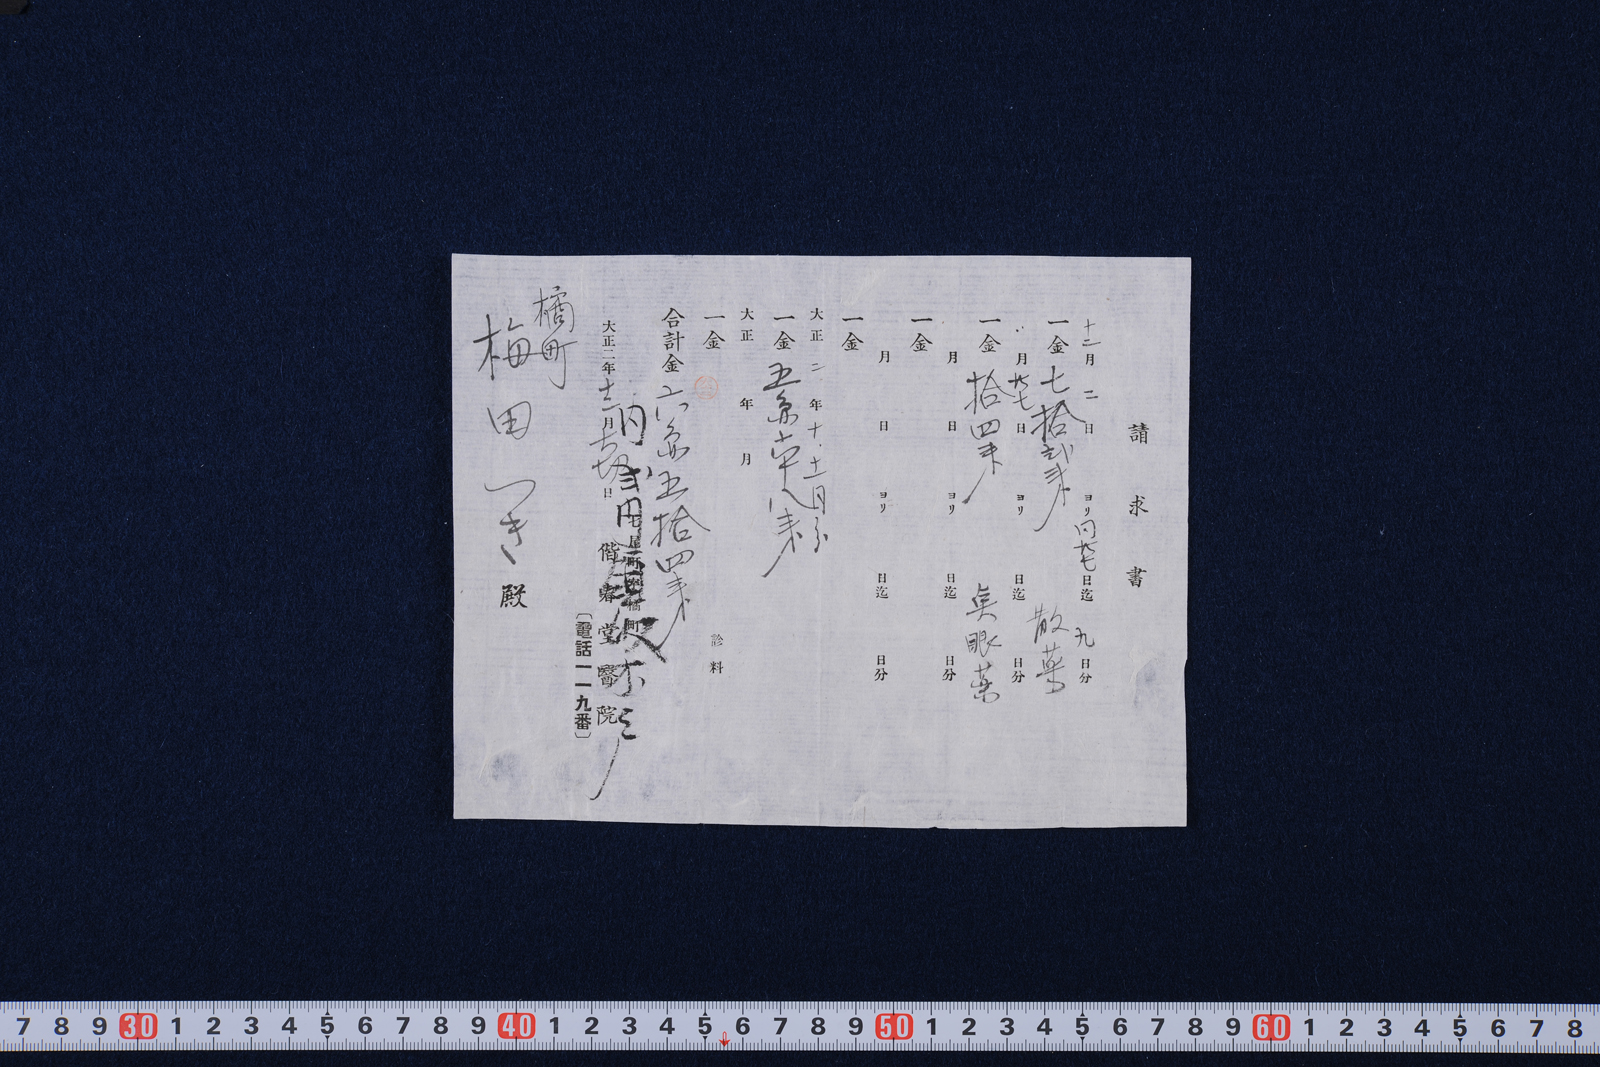 請求書
十二月二日ヨリ同廿七日迄九日分
一金七拾弐銭 散薬
月廿七日ヨリ 日迄 日分
一金拾四銭 点眼薬
月 日ヨリ 日迄 日分
一金
月 日ヨリ 日迄 日分
一金
大正二年十、十一月分
一金五円六十八銭
大正 年 月
一金 診料
合計金六円五拾四銭
内弐円
大正二年十二月 日
七尾町字橘町
偕春堂醫院
〔電話一一九番〕
橘町
梅田つき殿
7 8 9 30 1 2 3 4 5 6 7 8 9 40 1 2 3 4 5 6 7 8 9 50 1 2 3 4 5 6 7 8 9 60 1 2 3 4 5 6 7 8